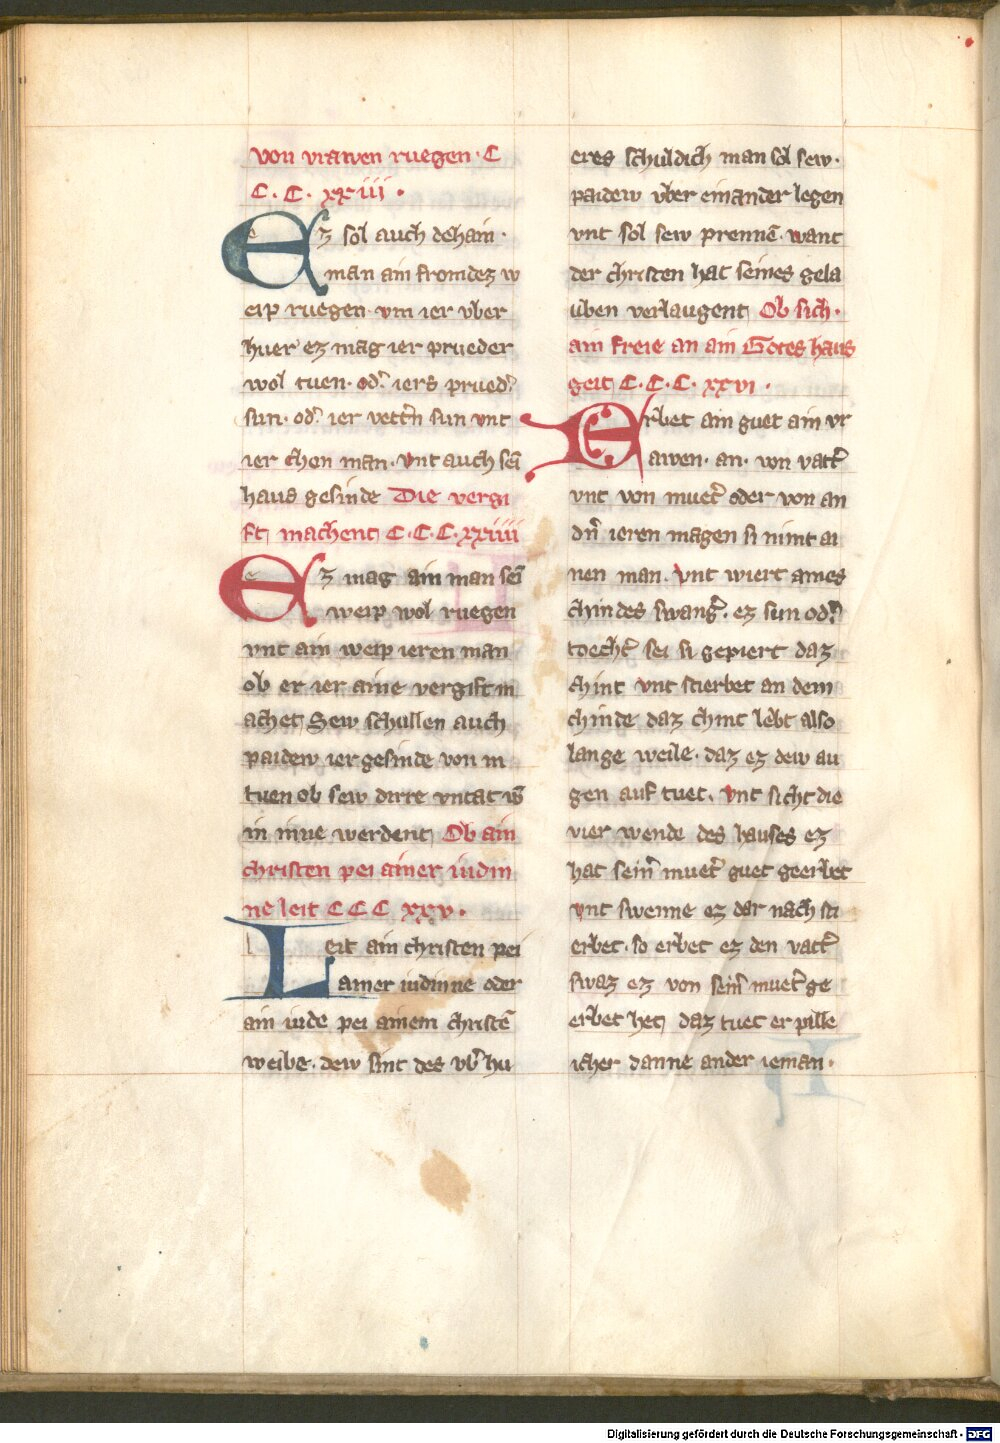 von vrawen ruegen · C
C · C · xxiii ·
Ez sol auch dehain ·
man ain fromdez w
eip ruegen vm ier vber
huer ez mag ier prueder
wol tuen · od̾ iers prued̾
sun · od̾ ier vett̾n sun vnt
ier chen man · vnt auch sei̅
haus gesinde Die vergi
ft machent C · C · C · xxiiii
Ez mag ain man sei̅
weip wol ruegen
vnt ain weip ieren man
ob er ier aine vergift m
achet Sew schullen auch
paidew ier gesinde von in
tuen ob sew dirre vntat w̅
in inne werdent Ob ain
christen pei ainer iudin
ne leit C C C xxv ·
Leit ain christen pei
ainer iudinne oder
ain iude pei ainem christe̅
weibe · dew sint des vb̾ hu
eres schuldich man sol sew ·
paidew vber einander legen
vnt sol sew prenne̅ · want
der christen hat seines gela
uben verlaugent Ob sich ·
ain freie an ain Gotes haus
geit C · C · C · xxvi ·
Erbet ain guet ain vr
awen · an · von vatt̾
vnt von muet̾ oder von an
dn̾ ieren magen si nimt ai
nen man · vnt wiert aines
chindes swang̾ · ez sun od̾
toecht̾ sei si gepiert daz
chint vnt stierbet an dem
chinde daz chint lebt also
lange weile · daz ez dew au
gen auf tuet · vnt sicht die
vier wende des hauses ez
hat sein̾ muet̾ guet geerbet
vnt swenne ez dar nach sti
erbet · so erbet ez den vatt̾
swaz ez von sein̾ muet̾ ge
erbet het daz tuet er pille
icher danne ander ieman ·
Digitalisierung gefördert durch die Deutsche Forschungsgemeinschaft - DFG